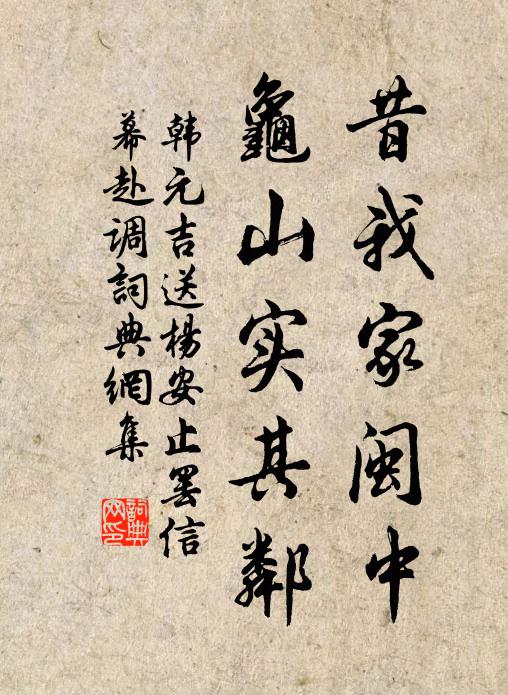 昔我家闽中
龜山实其鄰
韩元吉送楊安止罢信
幕赴调詞典網集
詞典網印